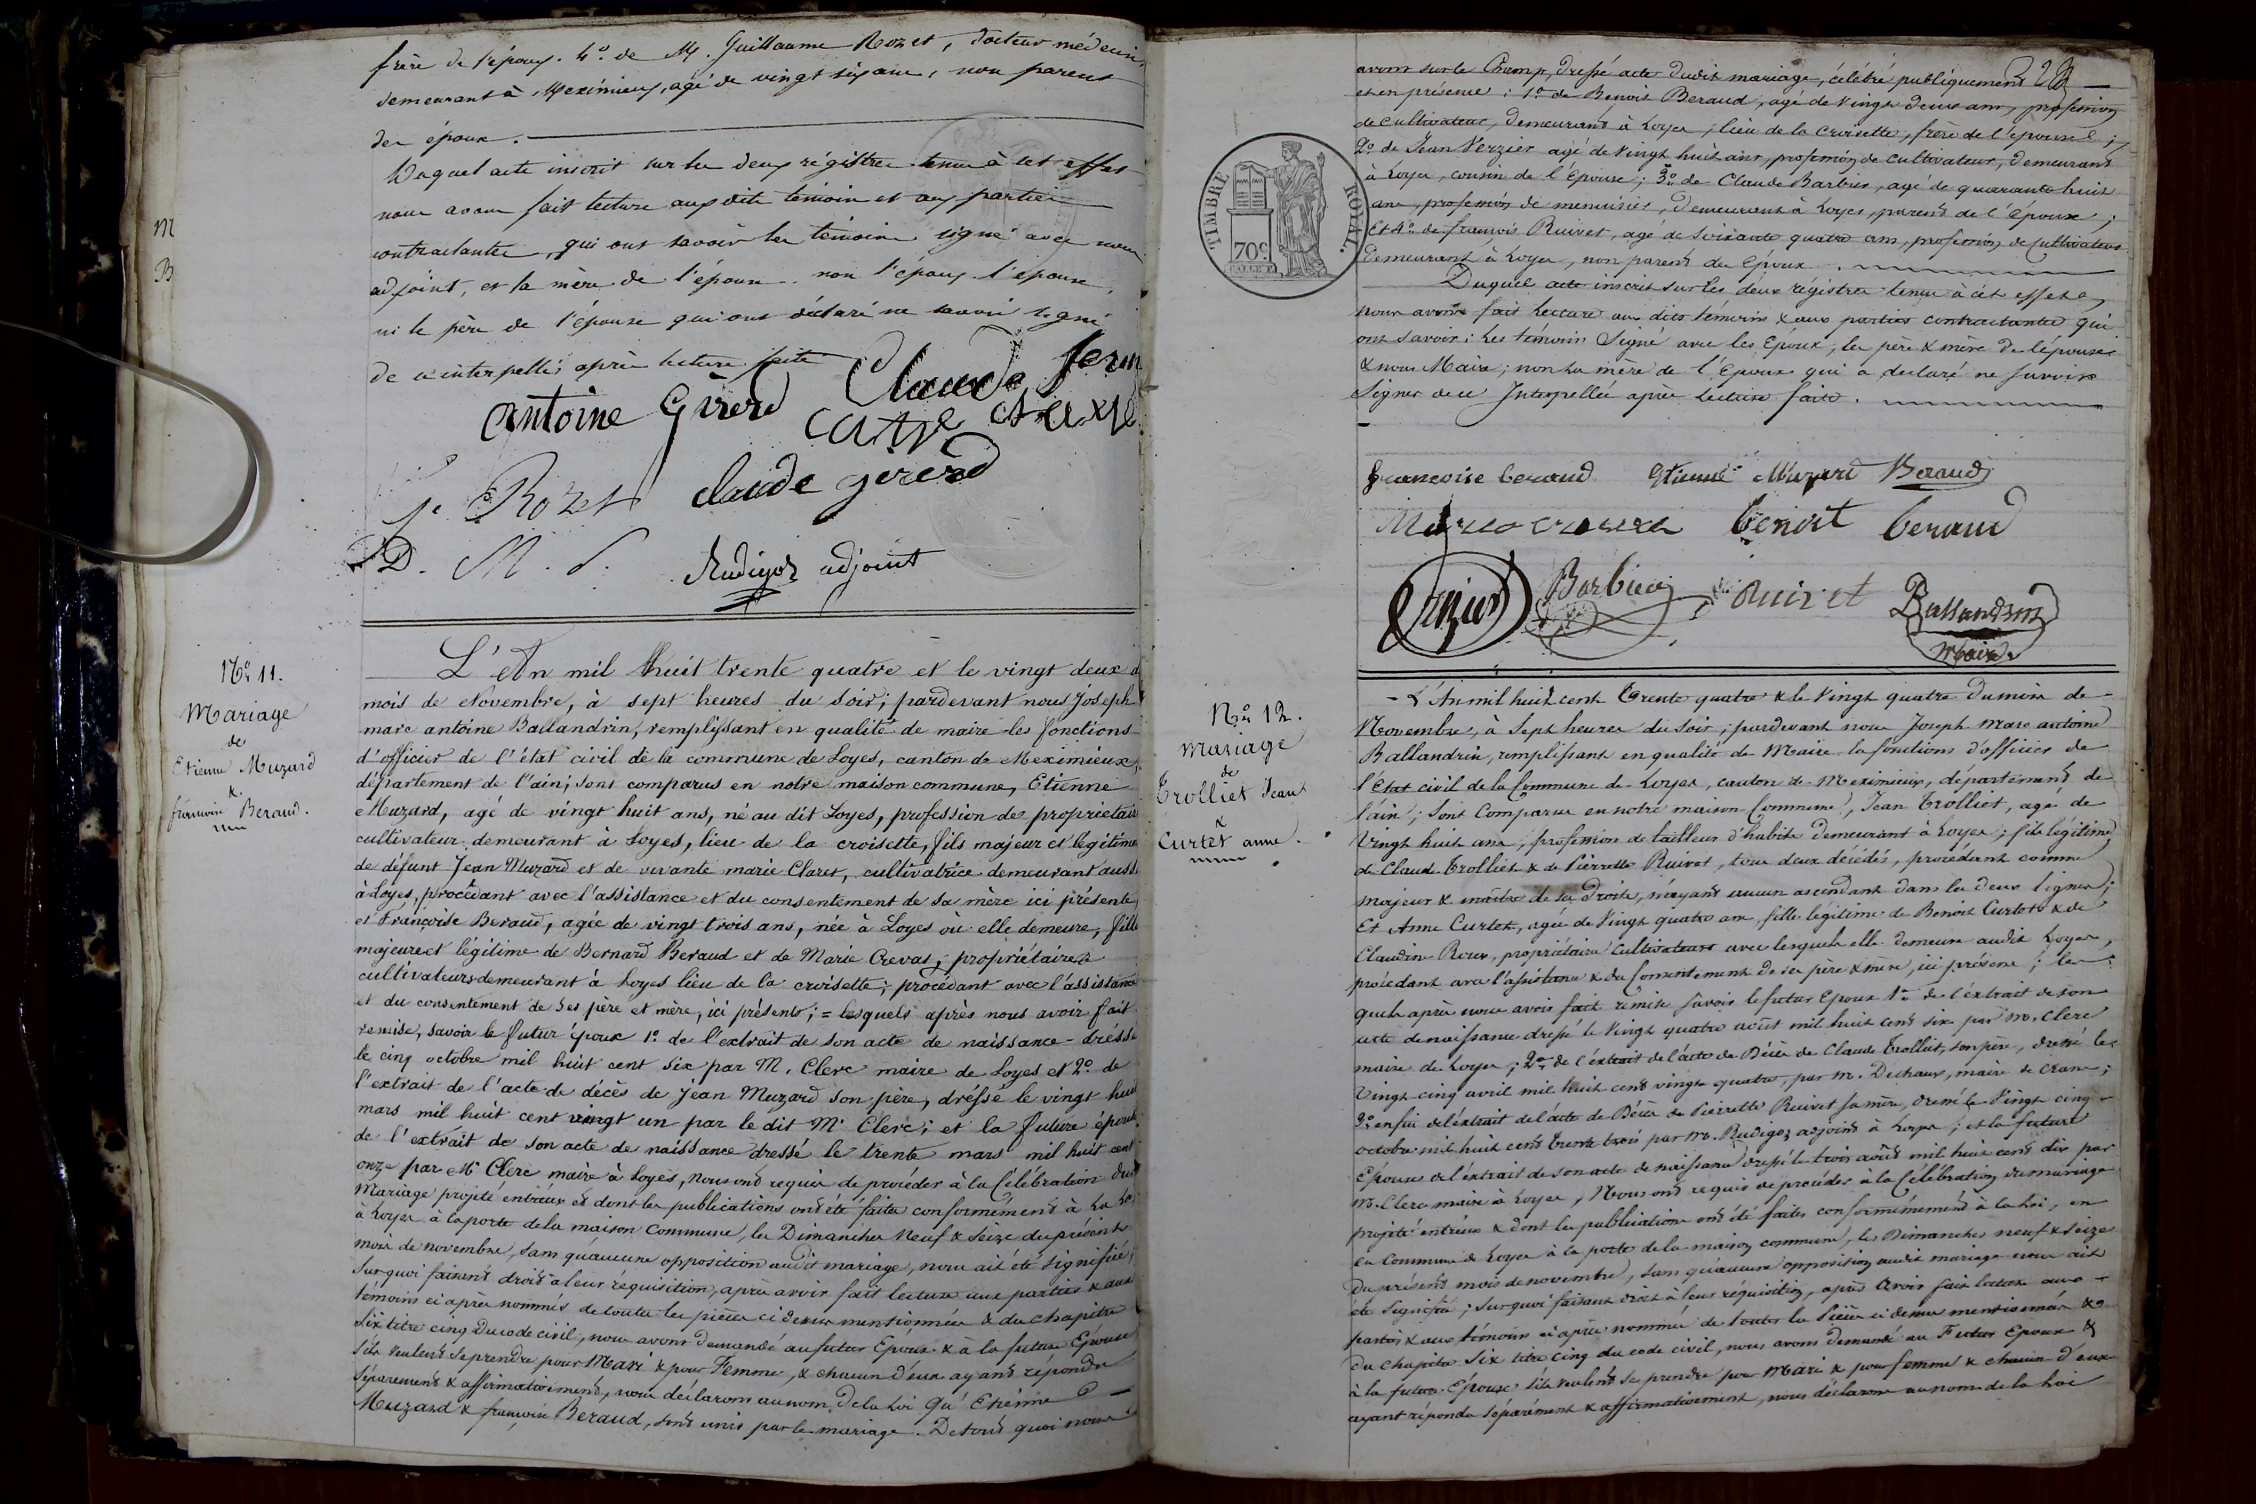 frère de l'époux. 4º. de M. Guillaume Rozet, docteur médecin,
demeurant à Meximieux, agé de vingt six ans, non parent
des époux.
Duquel acte inscrit sur les deux régistres tenus à cet effet
nous avons fait lecture aux dits témoins et aux parties
contractantes, qui ont savoir les témoins signé avec nous
adjoint, et la mère de l'époux. non l'époux l'épouse,
ni le père de l'épouse qui ont déclaré ne savoir signé
de ce interpellés après lecture faite
Claude
antoine Girerd
J. Rozet claude gererd
D. M. P. Rudigoz adjoint
M
B
Nº. 11.
Mariage
de
Etienne Muzard
&
françoise Beraud.
L'An mil huit trente quatre et le vingt deux d
mois de Novembre, à sept heures du soir; pardevant nous Joseph
marc antoine Ballandrin, remplissant en qualité de maire les fonctions
d'officier de l'état civil de la commune de Loyes, canton de Meximieux,
département de l'ain; sont comparus en notre maison commune, Etienne
Muzard, agé de vingt huit ans, né au dit Loyes, profession de propriétair
cultivateur demeurant à Loyes, lieu de la croisette, fils majeur et légitime
de défunt Jean Muzard et de vivante marie Claret, cultivatrice demeurant auss
à Loyes, procédant avec l'assistance et du consentement de sa mère ici présente,
et Françoise Beraud, agée de vingt trois ans, née à Loyes où elle demeure, fille
majeure et légitime de Bernard Beraud et de Marie Crevat, propriétaires
cultivateurs demeurant à Loyes lieu de la croisette; procédant avec l'assistance
et du consentement de ses père et mère, ici présents; = lesquels après nous avoir fait
remise, savoir le futur époux 1º. de l'extrait de son acte de naissance dréssé
le cinq octobre mil huit cent six par M. Clerc maire de Loyes et 2º. de
l'extrait de l'acte de décès de Jean Muzard son père, dréssé le vingt huit
mars mil huit cent vingt un par le dit Mr Clerc; et la future épouse
de l'extrait de son acte de naissance dressé le trente mars mil huit cent
onze par Mr Clerc maire à Loyes, Nous ont requis de procéder à la Célébration dud
Mariage projeté entr'eux et dont les publications ont été faites conformément à la Loi
à Loyes à la porte de la maison commune, les Dimanches Neuf & Seize du présent
mois de novembre, sans qu'aucune opposition audit mariage, nous ait été signifiée;
Sur quoi faisant droit à leur réquisition, après avoir fait lecture aux parties & aux
témoins ci après nommés de toutes les pièces ci dessus mentionnées & du chapitre
Six titre cinq du code civil, nous avons demandé au futur Epoux & à la future Epouse
s'ils veulent se prendre pour Mari & pour Femme, & chacun d'eux ayant répondu
séparement & affirmativement, nous déclarons au nom de la Loi qu'Etienne
Muzard & françoise Beraud, sont unis par le mariage. De tout quoi nous
avons sur le Champ, dressé acte dudit mariage, célébré publiquement
et en présence: 1º. de Benoit Beraud, agé de vingt deux ans, profession
de cultivateur, demeurant à Loyes, lieu de la croisette, frère de l'épouse;
2º. de Jean Verzier agé de vingt huit ans, profession de cultivateur, demeurant
à Loyes, cousin de l'épouse; 3º. de Claude Barbier, agé de quarante huit
ans, profession de menuisier, demeurant à Loyes, parent de l'époux;
et 4º. de françois Ruivet, agé de soixante quatre ans, profession de cultivateur
demeurant à Loyes, non parent des époux.
Duquel acte inscrit sur les deux registres tenus à cet effet
nous avons fait lecture aux dits témoins & aux parties contractantes qui
ont savoir: les témoins signé avec les Epoux, les père & mère de l'épouse
& nous Maire; non la mère de l'époux qui a déclaré ne savoir
Signer de ce Interpellée après lecture faite.
TIMBRE ROYAL.
70 c
francoise beraud Etienne Muzard Beraud
benoit beraud
Verzier Barbier Ruivet Ballandrin
Maire.
Nº. 12.
Mariage
de
Trolliet Jean
&
Curtet anne.
L'An mil huit cent trente quatre & le vingt quatre du mois de
Novembre, à sept heures du soir, pardevant nous Joseph Marc antoine
Ballandrin, remplissant en qualité de Maire les fonctions d'officier de
l'Etat civil de la Commune de Loyes, canton de Meximieux, département de
l'ain; sont comparus en notre maison commune, Jean Trolliet, agé de
vingt huit ans, profession de tailleur d'habits demeurant à Loyes; fils légitime
de Claude Trolliet & de Pierrette Ruivet, tous deux décédés, procédant comme
majeur & maître de ses droits, n'ayant aucun ascendant dans les deux lignes;
Et Anne Curtet, agée de vingt quatre ans, fille légitime de Benoit Curtet & de
Claudine Roux, propriétaires cultivateurs avec lesquels elle demeure audit Loyes,
procédant avec l'assistance & du consentement de ses père & mère, ici présens; les
quels après nous avoir fait remise savoir le futur Epoux 1º. de l'extrait de son
acte de naissance dressé le vingt quatre août mil huit cent six par M. Clerc
maire de Loyes; 2º. de l'extrait de l'acte de Décès de Claude Trolliet, son père, dressé le
vingt cinq avril mil huit cent vingt quatre, par M. Dechaux, maire de Crans;
3º. enfin de l'extrait de l'acte de Décès de Pierrette Ruivet sa mère, dressé le vingt cinq
octobre mil huit cent trente trois par M. Rudigoz adjoint à Loyes; et la future
Epouse de l'extrait de son acte de naissance dressé le trois août mil huit cent dix par
M. Clerc maire à Loyes, Nous ont requis de procéder à la Célébration du mariage
projeté entr'eux & dont les publications ont été faites conformément à la loi, en
la Commune de Loyes à la porte de la maison commune, les Dimanches neuf & seize
du présent mois de novembre, sans qu'aucune opposition audit mariage nous ait
été signifiée; Sur quoi faisant droit à leur réquisition, après avoir fait lecture aux
parties & aux témoins ci après nommés de toutes les pièces ci dessus mentionnées &
du chapitre Six titre cinq du code civil, nous avons demandé au Futur Epoux &
à la future Epouse s'ils veulent se prendre pour Mari & pour femme & chacun d'eux
ayant répondu séparément & affirmativement, nous déclarons au nom de la Loi